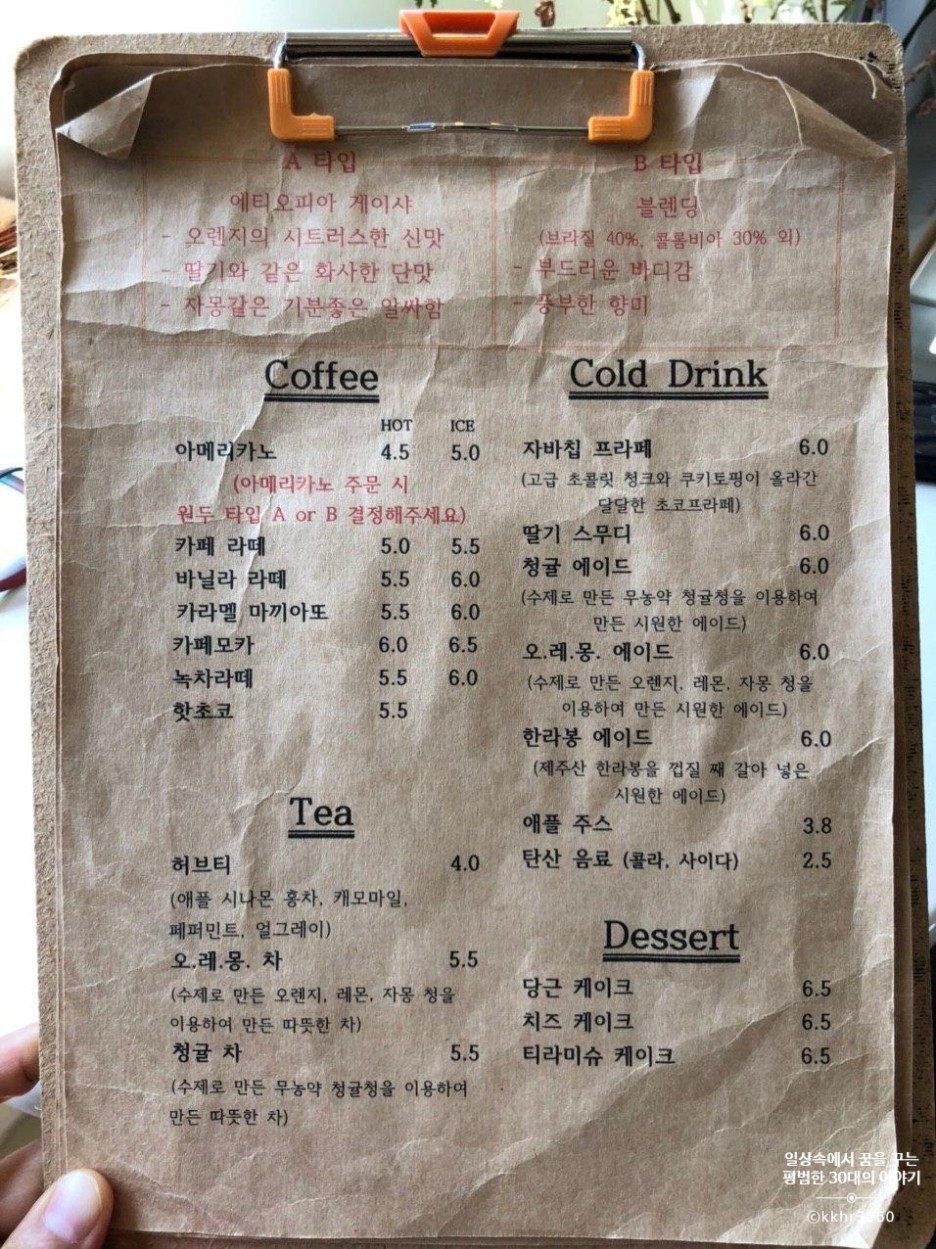 A 타입
에티오피아 게이샤
- 오렌지의 시트러스한 신맛
- 딸기와 같은 화사한 단맛
- 자몽같은 기분좋은 알싸함
B 타입
블렌딩
(브라질 40%, 콜롬비아 30% 외)
- 부드러운 바디감
- 풍부한 향미
Coffee
HOT ICE
아메리카노 4.5 5.0
(아메리카노 주문 시
원두 타입 A or B 결정해주세요)
카페 라떼 5.0 5.5
바닐라 라떼 5.5 6.0
카라멜 마끼아또 5.5 6.0
카페모카 6.0 6.5
녹차라떼 5.5 6.0
핫초코 5.5
Tea
허브티 4.0
(애플 시나몬 홍차, 캐모마일,
페퍼민트, 얼그레이)
오.레.몽. 차 5.5
(수제로 만든 오렌지, 레몬, 자몽 청을
이용하여 만든 따뜻한 차)
청귤 차 5.5
(수제로 만든 무농약 청귤청을 이용하여
만든 따뜻한 차)
Cold Drink
자바칩 프라페 6.0
(고급 초콜릿 청크와 쿠키토핑이 올라간
달달한 초코프라페)
딸기 스무디 6.0
청귤 에이드 6.0
(수제로 만든 무농약 청귤청을 이용하여
만든 시원한 에이드)
오.레.몽. 에이드 6.0
(수제로 만든 오렌지, 레몬, 자몽 청을
이용하여 만든 시원한 에이드)
한라봉 에이드 6.0
(제주산 한라봉을 껍질 째 갈아 넣은
시원한 에이드)
애플 주스 3.8
탄산 음료 (콜라, 사이다) 2.5
Dessert
당근 케이크 6.5
치즈 케이크 6.5
티라미슈 케이크 6.5
일상속에서 꿈을 꾸는
평범한 30대의 이야기